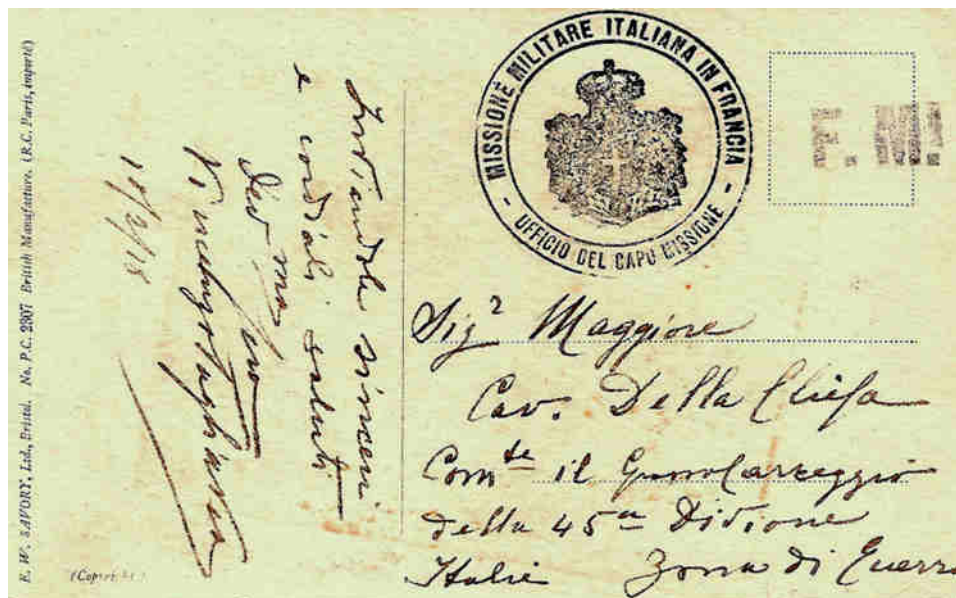 E. W. SAVORY, Ltd., Bristol. No. P.C. 2307 British Manufacture. (R.C. Paris, importé)
Inviandole sinceri
e cordiali saluti
Dev mo
Suo
18/2/18
MISSIONE MILITARE ITALIANA IN FRANCIA
- UFFICIO DEL CAPO MISSIONE -
F. M.
Sigr Maggiore
Cav. Della Chiesa
Comte il Carreggio
della 45a Divione
Italie Zona di Guerra